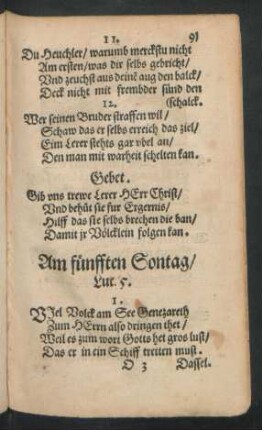 11. 91
Du Heuchler/ warumb merckstu nicht
Am ersten/ was dir selbs gebricht/
Vnd zeuchst aus deinē aug den balck/
Deck nicht mit frembder sünd den
12. (schalck.
Wer seinen Bruder straffen wil/
Schaw das er selbs erreich das ziel/
Eim Lerer stehts gar vbel an/
Den man mit warheit schelten kan.
Gebet.
Gib vns trewe Lerer HErr Christ/
Vnd behüt sie fur Ergernis/
Hilff das sie selbs brechen die ban/
Damit jr Völcklein folgen kan.
Am fünfften Sontag/
Luc. 5.
1.
VJel Volck am See Genezareth
Zum HErrn also dringen thet/
Weil es zum wort Gotts het gros lust/
Das er in ein Schiff tretten must.
O 3 Dasses.